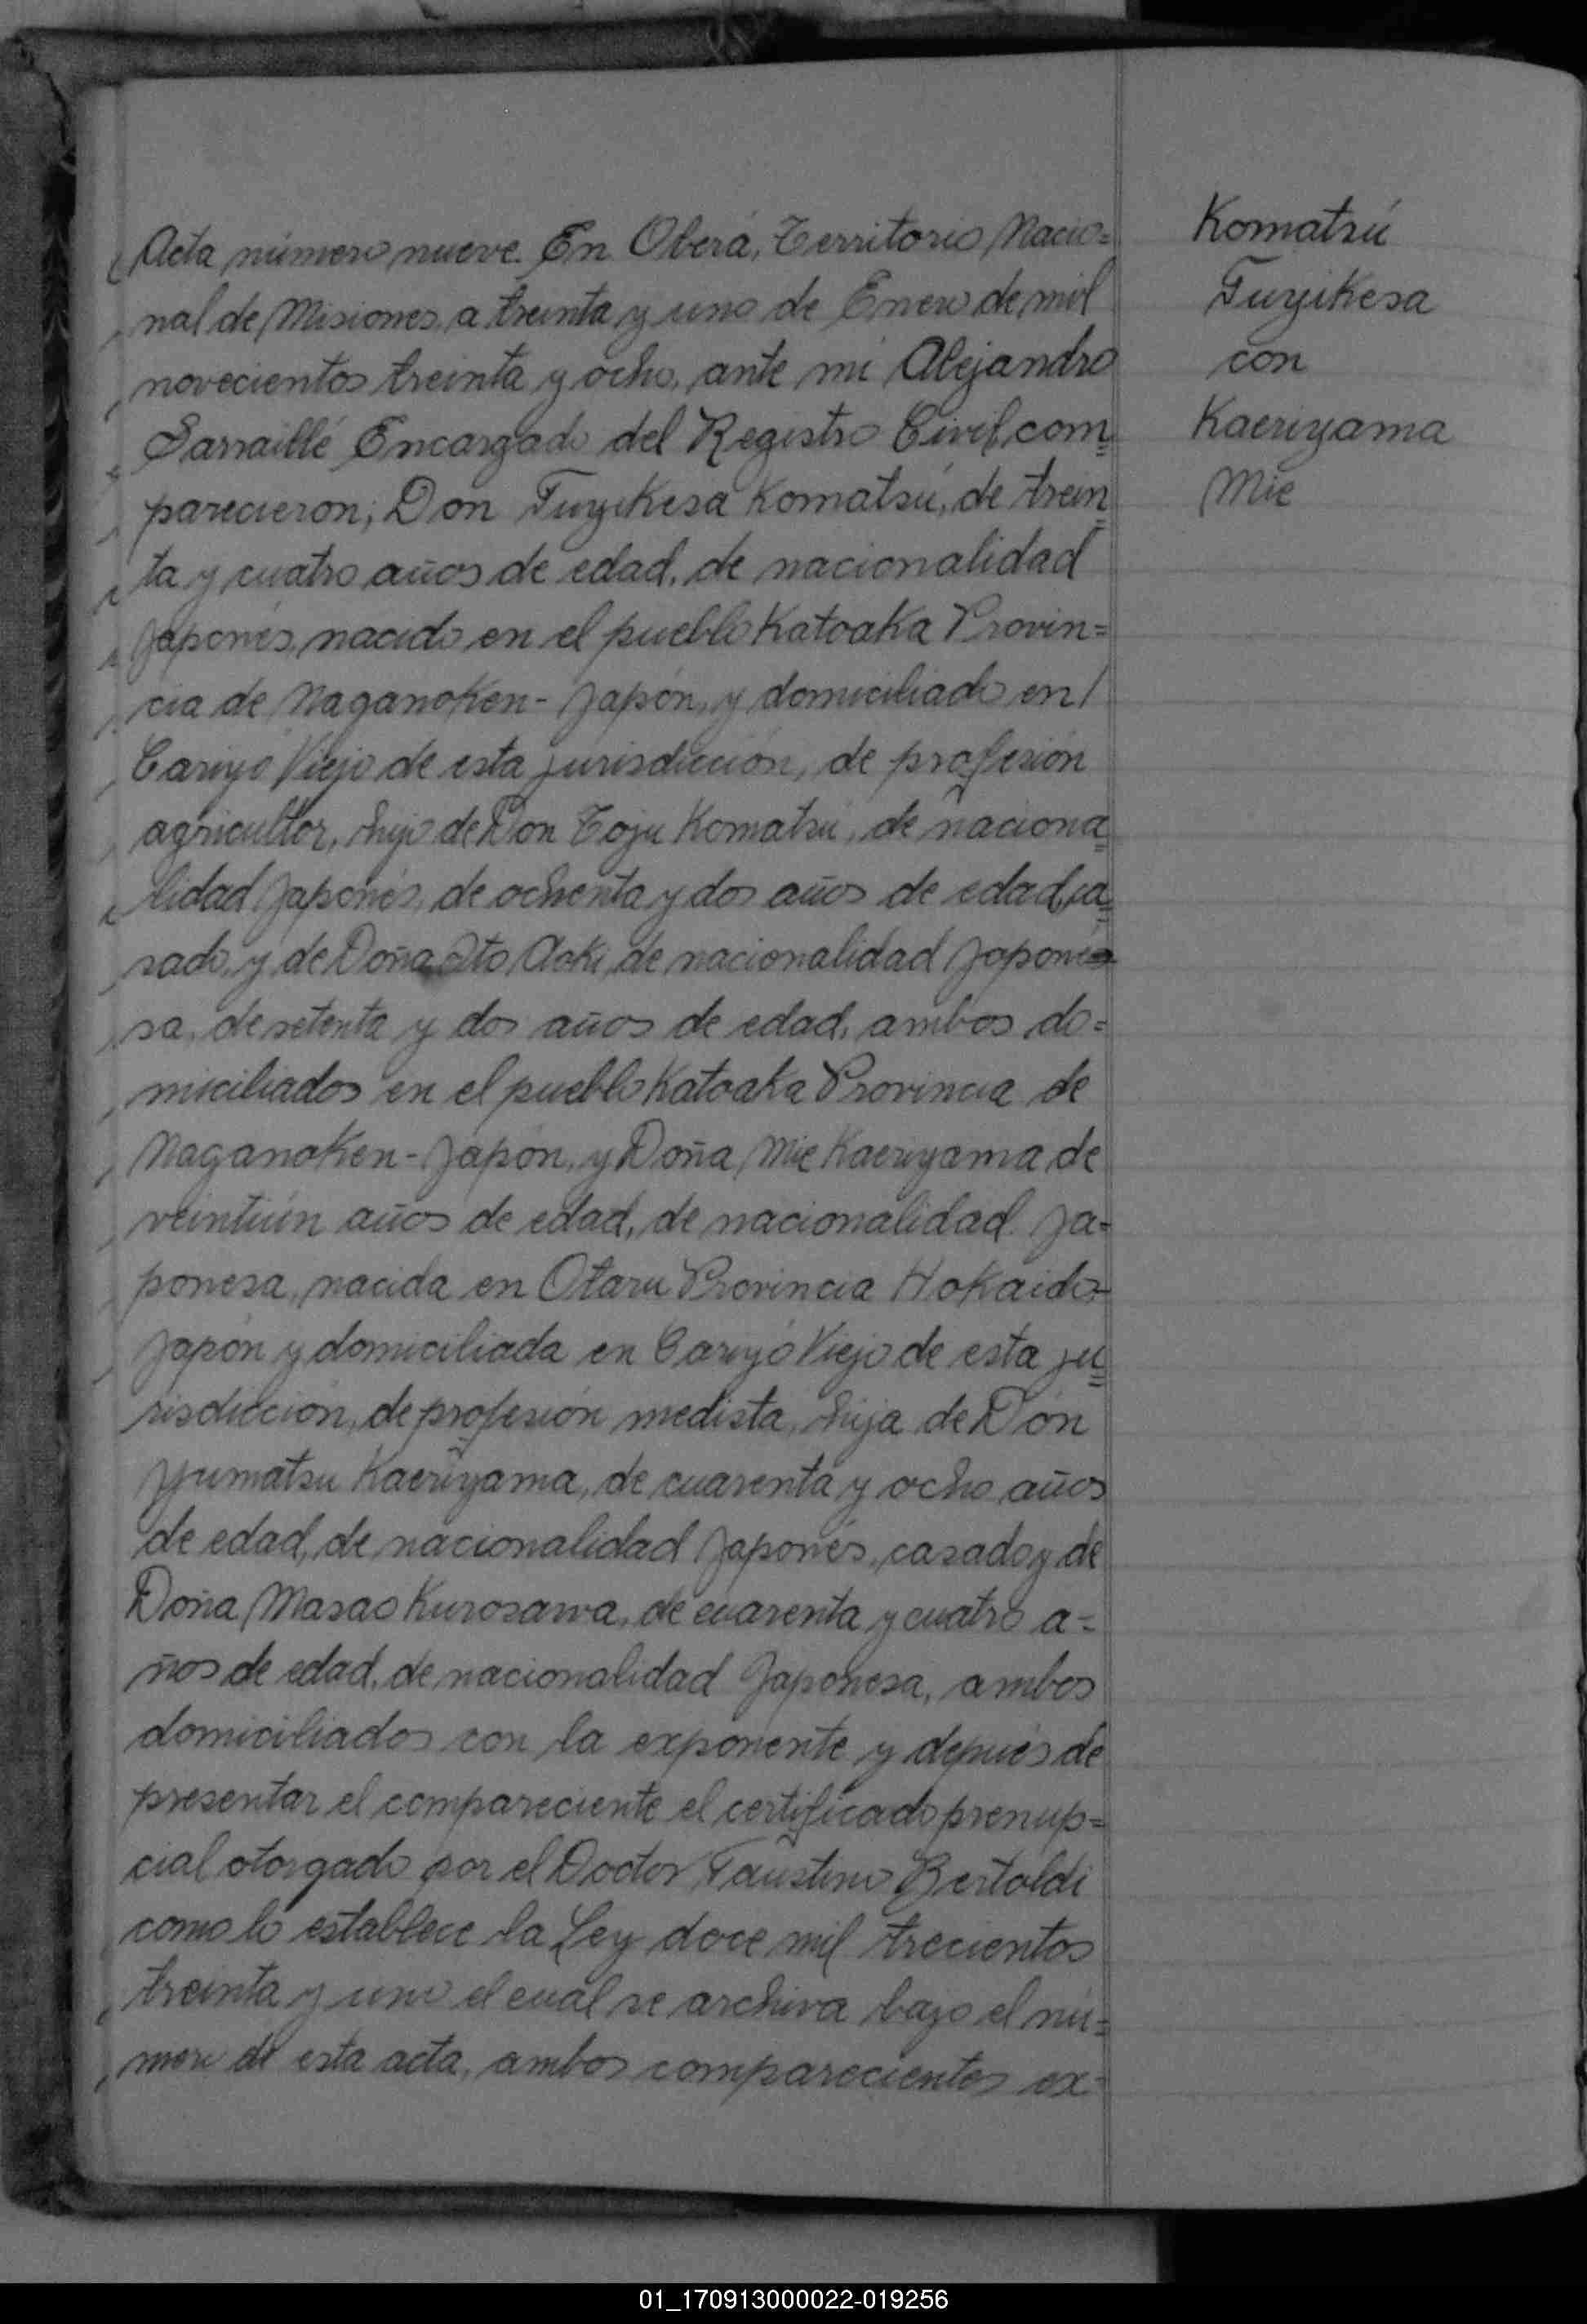 Acta número nueve. En Oberá, Territorio Nacio=
nal de Misiones, a treinta y uno de Enero de mil
novecientos treinta y ocho, ante mi Alejandro
Sarraillé Encargado del Registro Civil, com=
parecieron; Don Fuyikesa Komatsú, de trein=
ta y cuatro años de edad, de nacionalidad
Japonés, nacido en el pueblo Katoaka Provin=
cia de Naganoken - Japón, y domiciliado en /
Cariyó Viejo de esta jurisdicción, de profesión
agricultor, hijo de Don Toju Komatsú, de naciona=
lidad Japonés, de ochenta y dos años de edad, ca=
sado, y de Doña Ito Aoki, de nacionalidad Japone=
sa, de setenta y dos años de edad, ambos do=
miciliados en el pueblo Katoaka Provincia de
Naganoken - Japón, y Doña Mie Kaeriyama de
veintiún años de edad, de nacionalidad Ja=
ponesa, nacida en Otaru Provincia Hokaido-
Japón y domiciliada en Cariyó Viejo de esta ju=
risdicción, de profesión medista, hija de Don
Yumatsu Kaeriyama, de cuarenta y ocho años
de edad, de nacionalidad Japonés, casado y de
Doña Masao Kurosawa, de cuarenta y cuatro a=
ños de edad, de nacionalidad Japonesa, ambos
domiciliados con la exponente y depués de
presentar el compareciente el certificado prenup=
cial otorgado por el Doctor Faustino Bertoldi
como lo establece la Ley doce mil trecientos
treinta y uno el cual se archiva bajo el nú=
mero de esta acta, ambos comparecientes ex=
Komatsú
Fuyikesa
con
Kaeriyama
Mie
01_170913000022-019256